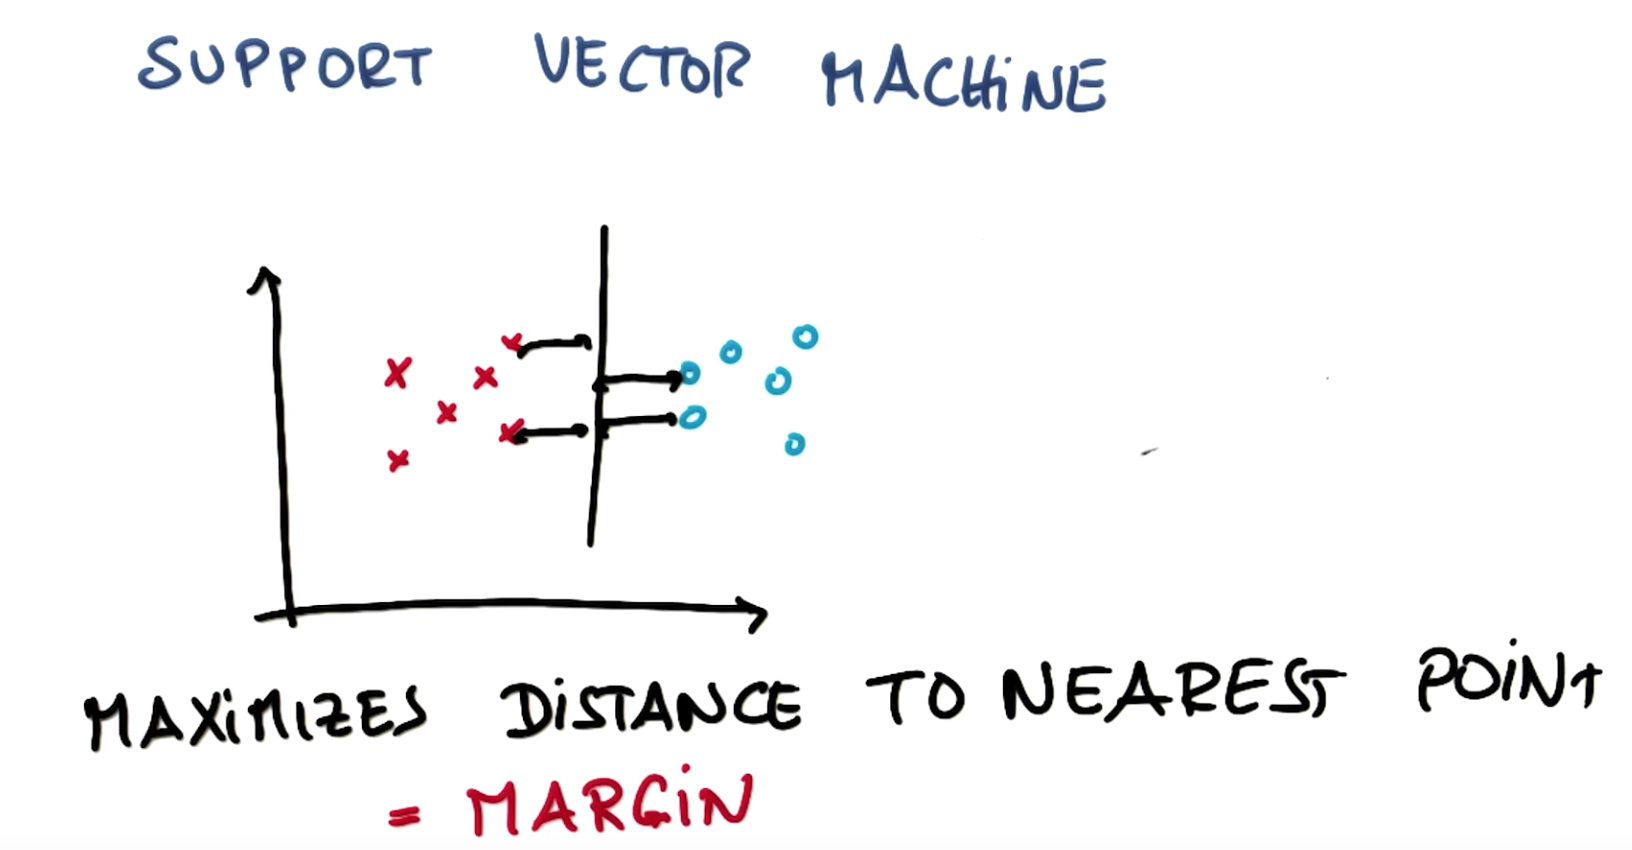 SUPPORT VECTOR MACHiNE
MAXiMiZES DiSTANCE TO NEAREST POiNT
= MARGiN